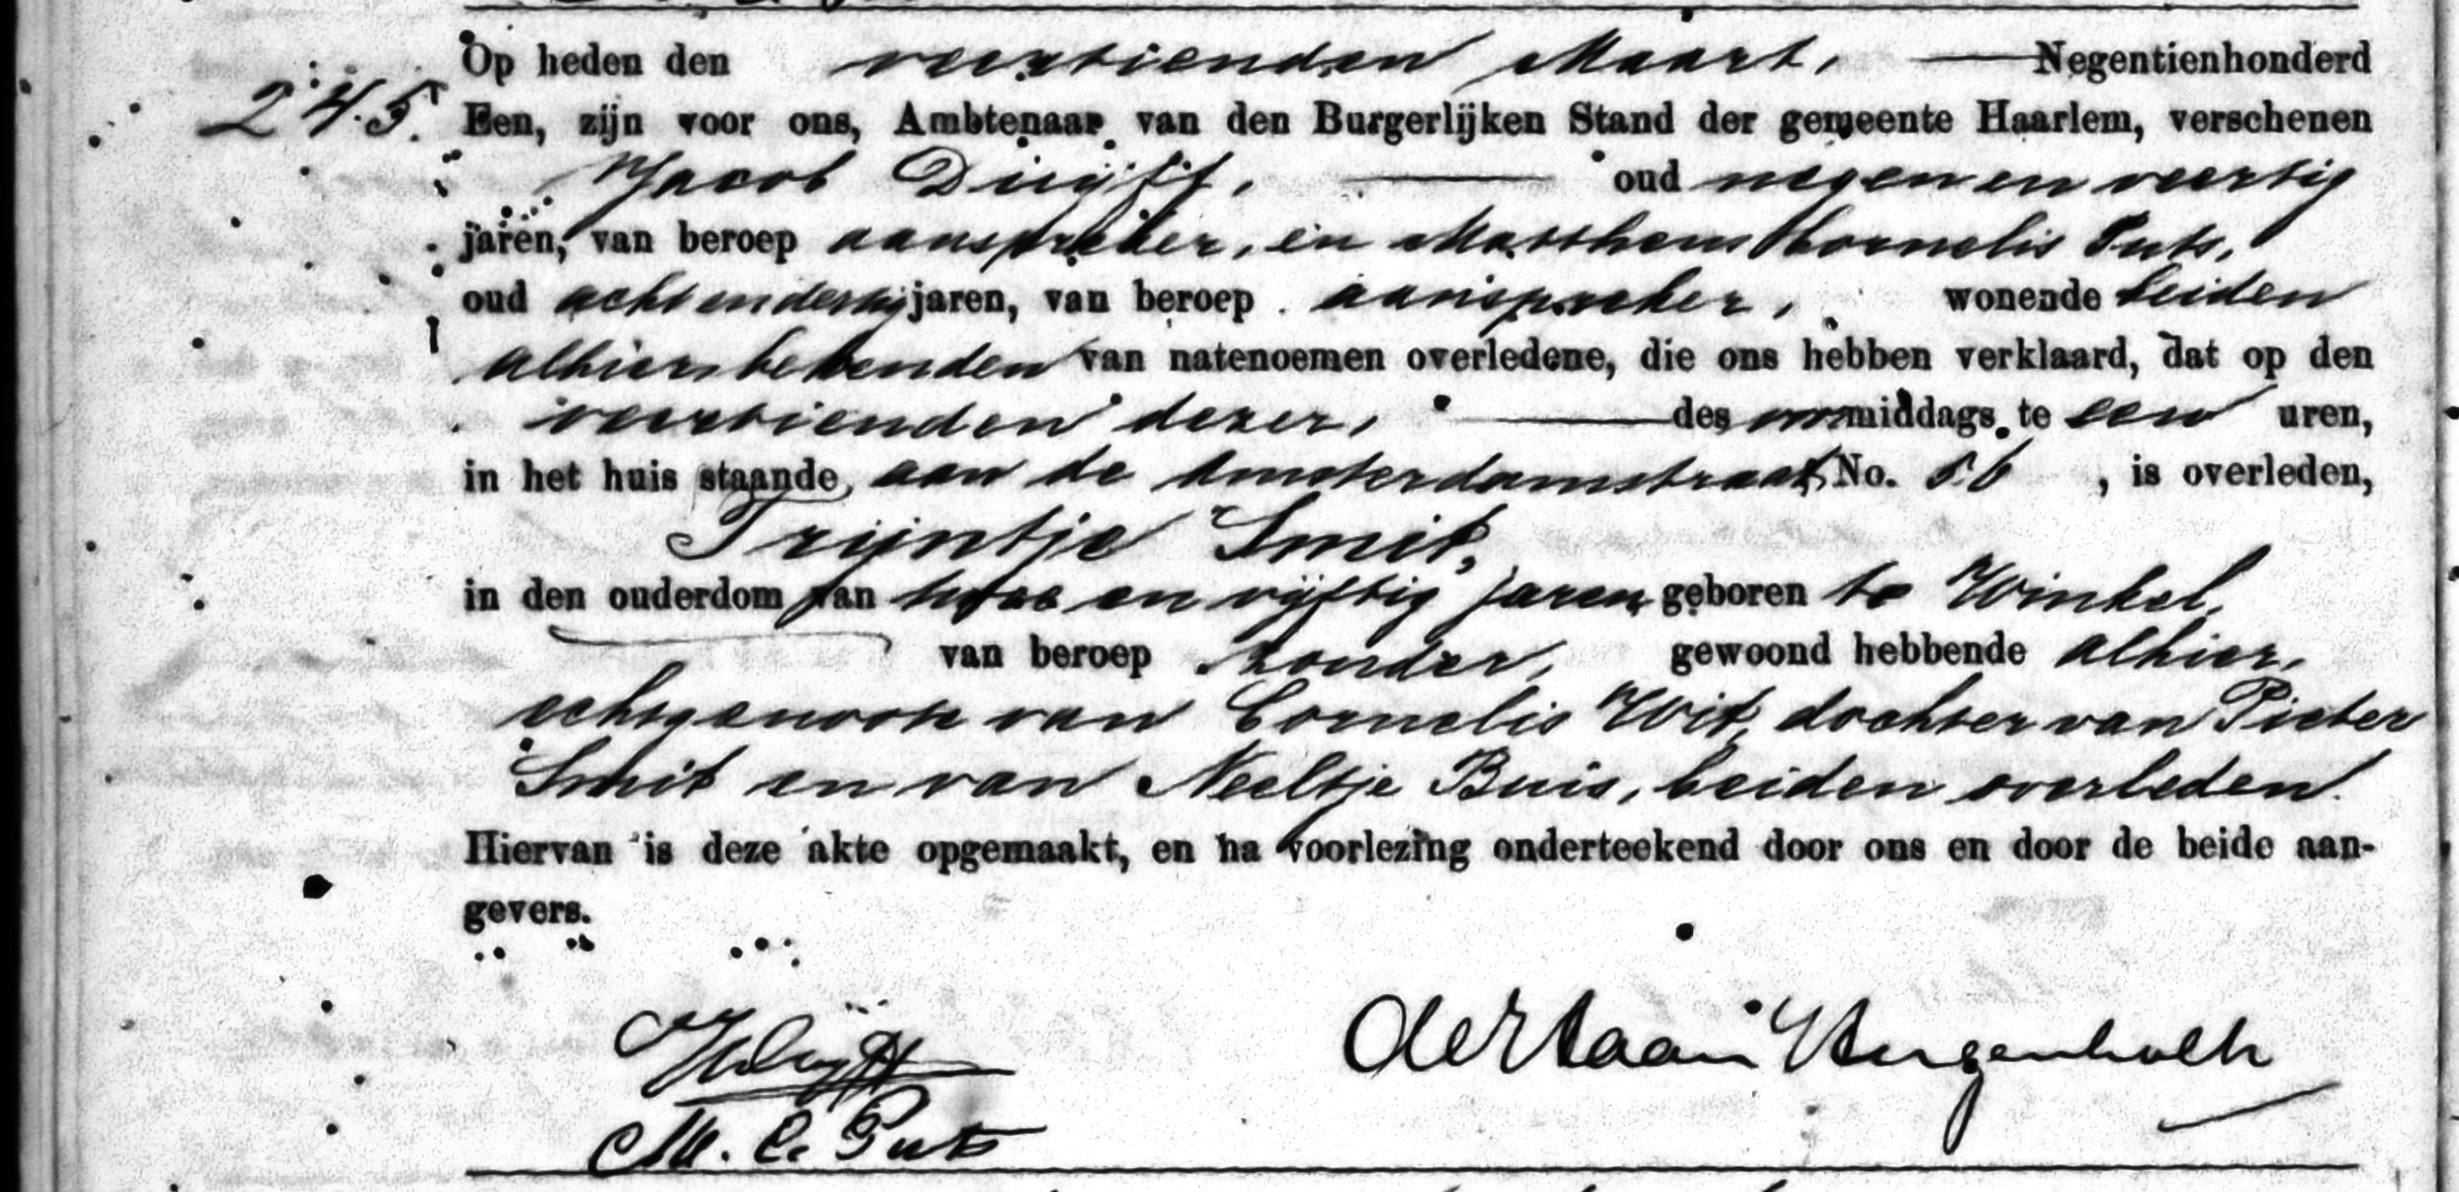 245.
Op heden den veertienden Maart, Negentienhonderd
Een, zijn voor ons, Ambtenaar van den Burgerlijken Stand der gemeente Haarlem, verschenen
Jacob Duijff, oud negen en veertig
jaren, van beroep aanspreker, en Mattheus Cornelis Puts,
oud acht en dertig jaren, van beroep aanspreker, wonende beiden
alhier, bekenden van natenoemen overledene, die ons hebben verklaard, dat op den
veertienden dezer, des voormiddags te een uren,
in het huis staande aan de Amsterdamstraat No. 56, is overleden,
Trijntje Smit,
in den ouderdom van twee en vijftig jaren, geboren te Winkel,
van beroep zonder, gewoond hebbende alhier,
echtgenoote van Cornelis Wit, dochter van Pieter
Smit en van Neeltje Buis, beiden overleden.
Hiervan is deze akte opgemaakt, en na voorlezing onderteekend door ons en door de beide aan-
gevers.
M. C. Puts